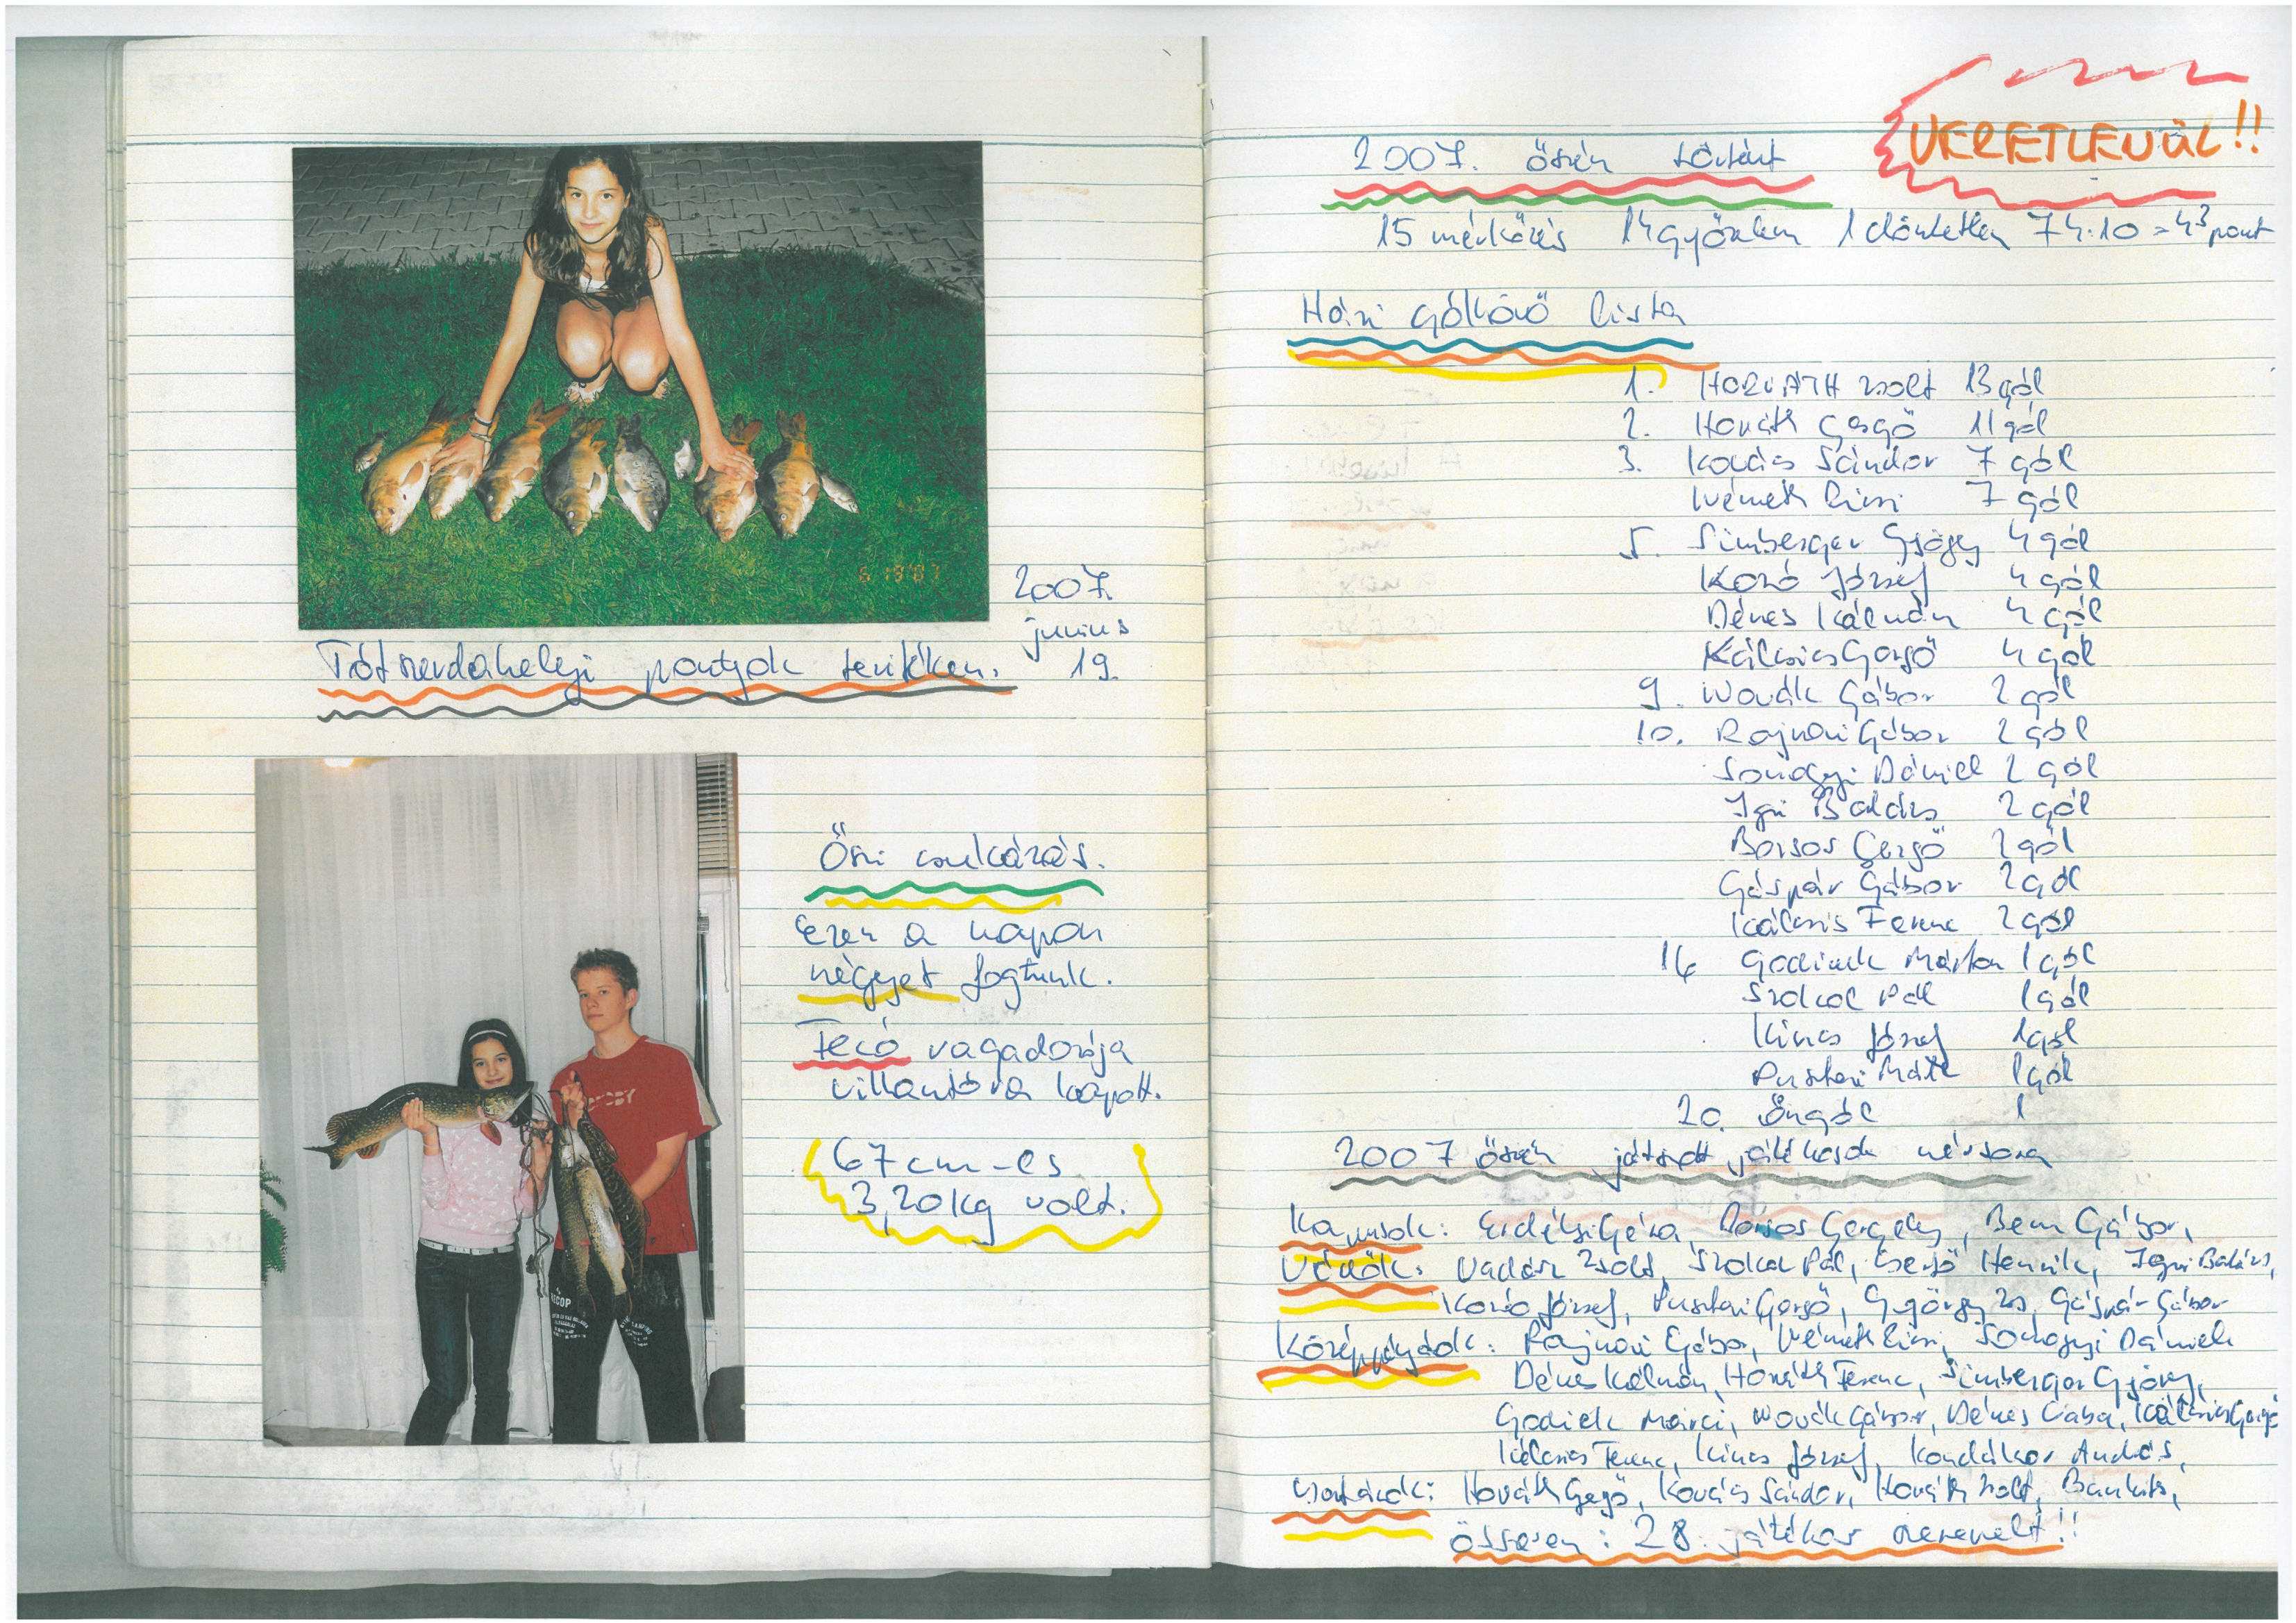 6 19'07
2007.
junius
19.
Tótszerdahelyi pontyok terítéken.
Őszi csukázás.
Ezen a napon
négyet fogtunk.
Fecó ragadozója
villantóra kapott.
67 cm-es
3,20 kg volt.
VERETLENÜL!!
2007. őszén történt
15 mérkőzés 14 győzelem 1 döntetlen 74:10 = 43 pont
Házi góllövő lista
1. HORVÁTH Zsolt 13 gól
2. Horváth Gergő 11 gól
3. Kovács Sándor 7 gól
Németh Ricsi 7 gól
5. Simberger György 4 gól
Kozó József 4 gól
Dénes Kálmán 4 gól
Kálcsics Gergő 4 gól
9. Novák Gábor 2 gól
10. Rajnai Gábor 2 gól
Somogyi Dániel 2 gól
Igri Balázs 2 gól
Borsos Gergő 2 gól
Gáspár Gábor 2 gól
Kálcsics Ferenc 2 gól
16 Godinek Márton 1 gól
Szokol Pál 1 gól
Kincs József 1 gól
Pusztai Máté 1 gól
20. Öngól 1
2007 őszén játszott játékosok névsora
Kapusok: Erdélyi Géza, Borsos Gergely, Bem Gábor,
Védők: Vadász Zsolt, Szokol Pál, Gergő Henrik, Igri Balázs,
Kozó József, Pusztai Gergő, György Zs, Gáspár Gábor
Középpályások: Rajnai Gábor, Németh Ricsi, Somogyi Dániel
Dénes Kálmán, Horváth Ferenc, Simberger György,
Godinek Marci, Novák Gábor, Dénes Csaba, Kálcsics Gergő
Kálcsics Ferenc, Kincs József, Kondákor András,
Csatárok: Horváth Gergő, Kovács Sándor, Horváth Zsolt,
Összesen: 28 játékos szerepelt!!